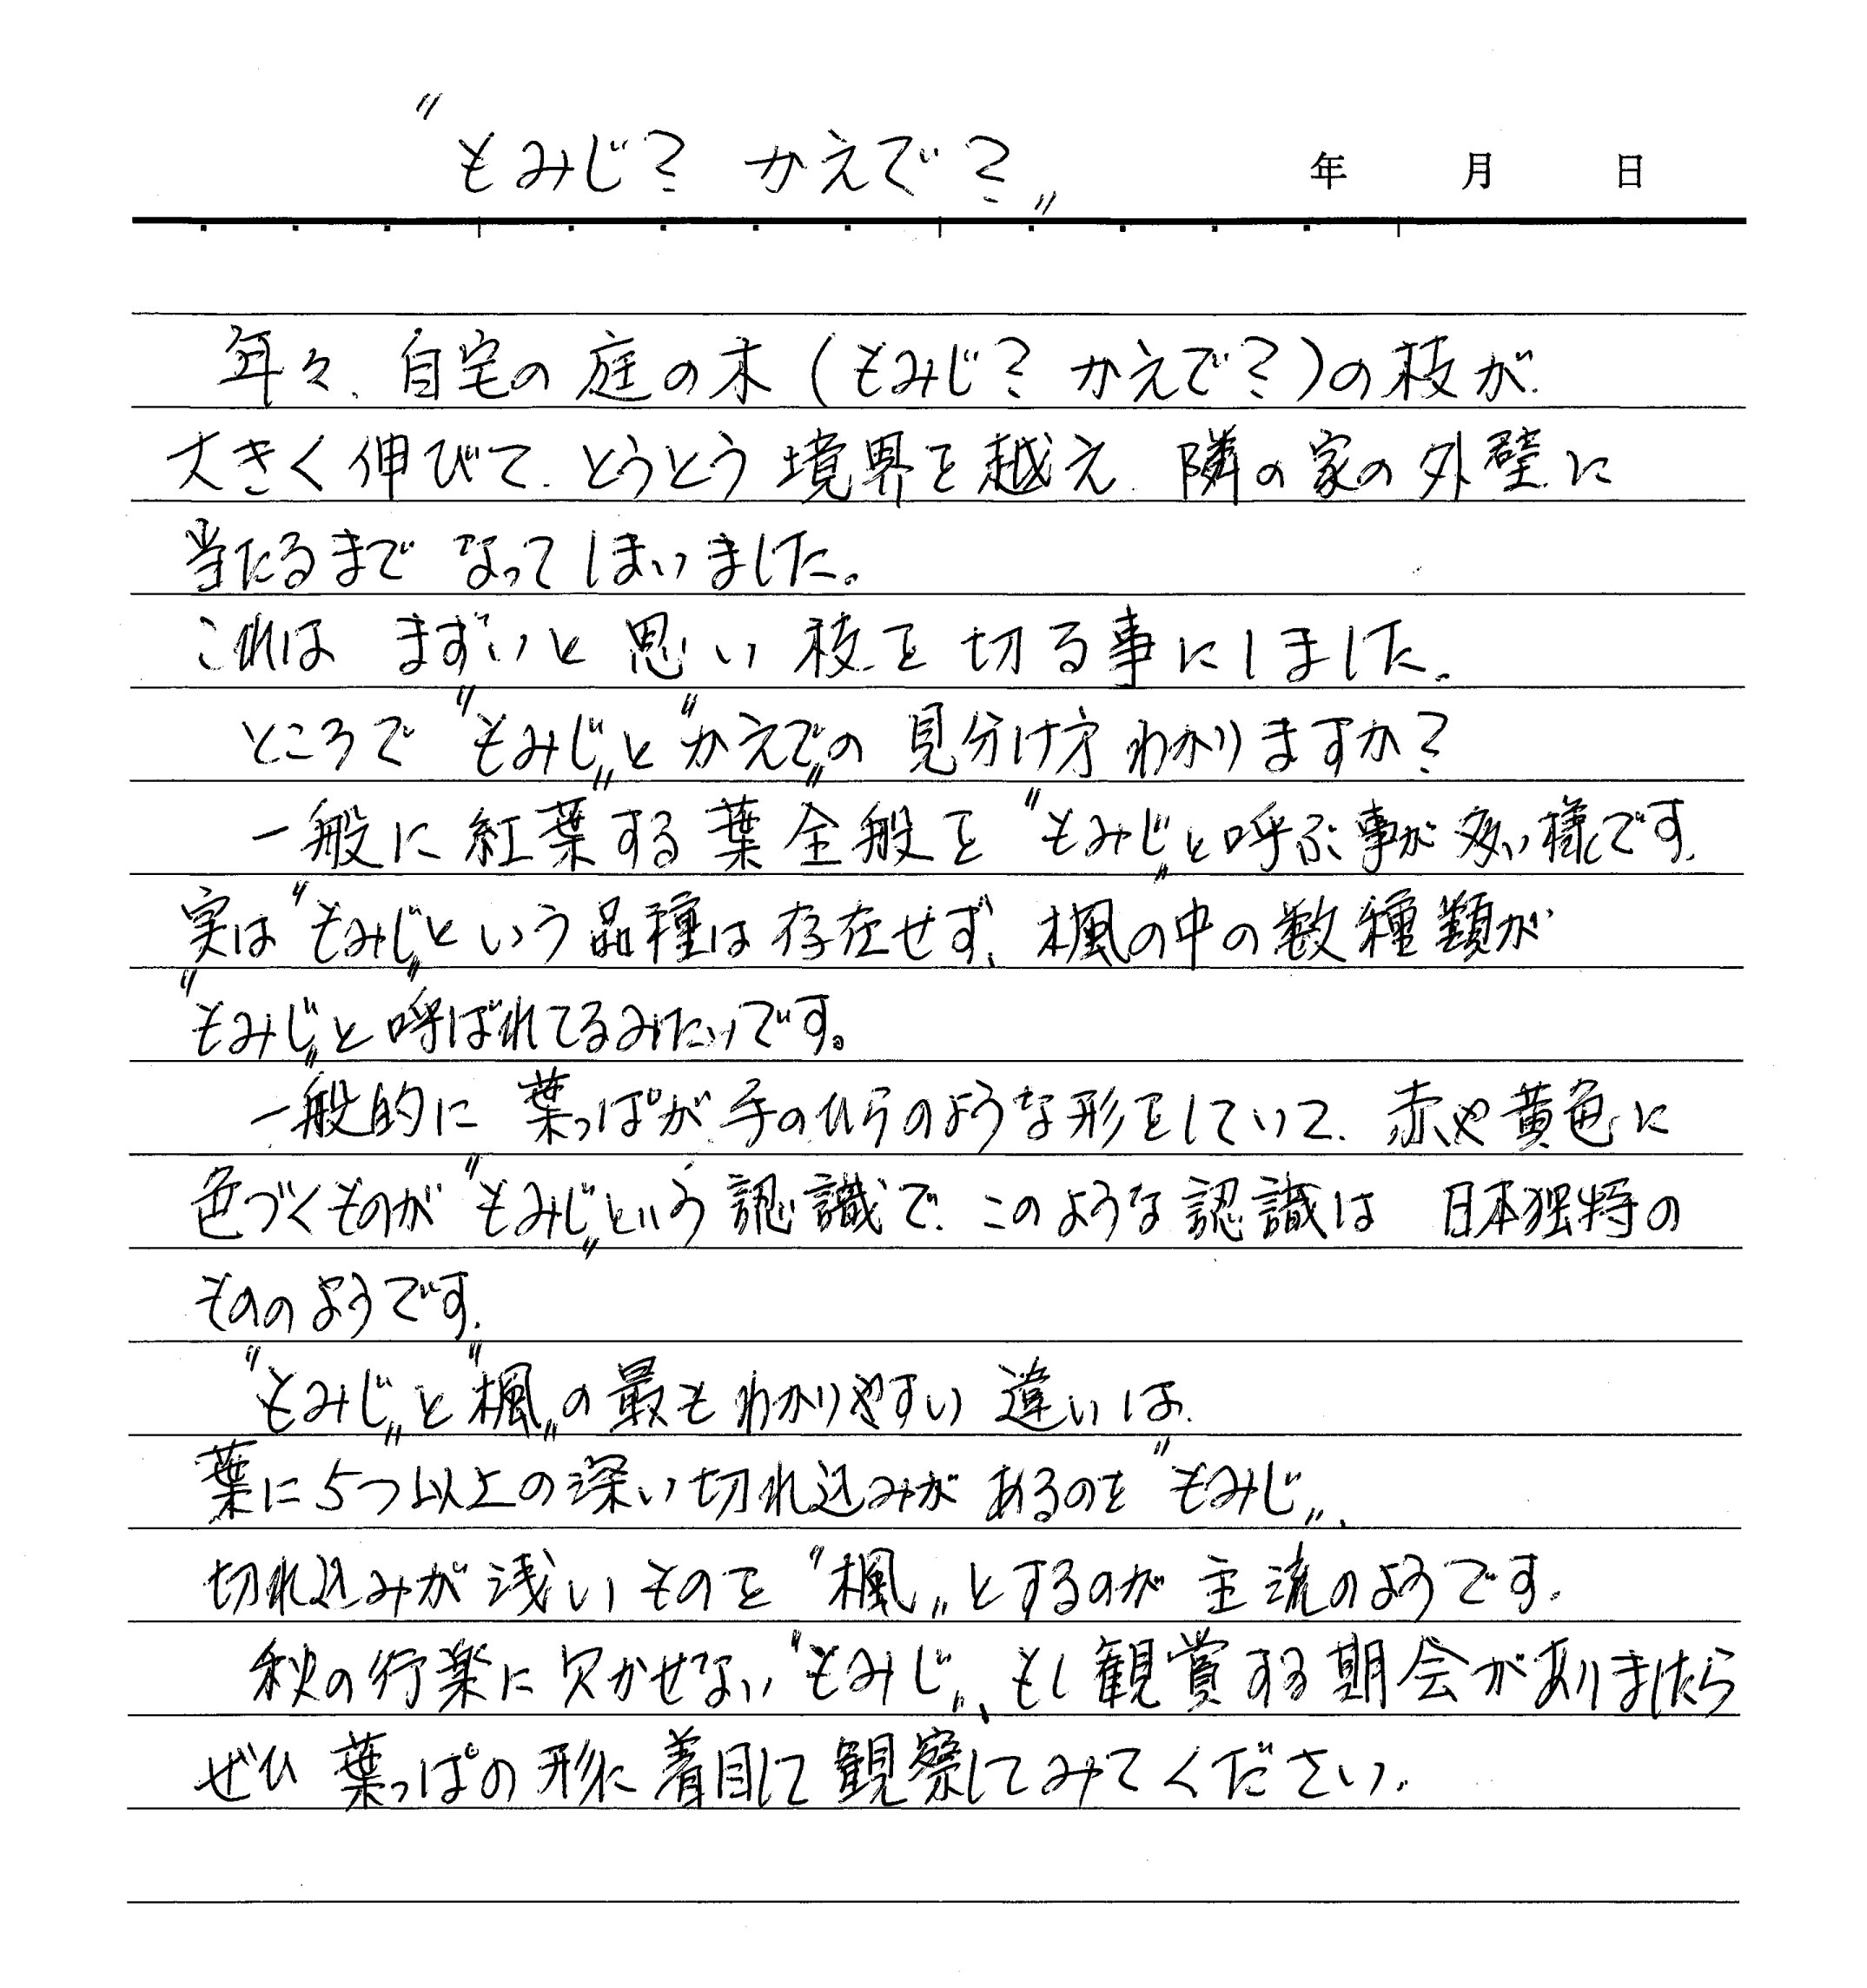 〃もみじ？ かえで？〃 年 月 日
年々、自宅の庭の木（もみじ？ かえで？）の枝が、
大きく伸びて、とうとう境界を越え、隣の家の外壁に
当たるまで なってしまいました。
これは まずいと思い枝を切る事にしました。
ところで〃もみじ〃と〃かえで〃の見分け方わかりますか？
一般に紅葉する葉全般を〃もみじ〃と呼ぶ事が多い様です。
実は〃もみじ〃という品種は存在せず、楓の中の数種類が
〃もみじ〃と呼ばれてるみたいです。
一般的に 葉っぱが手のひらのような形をしていて、赤や黄色に
色づくものが〃もみじ〃という認識で、このような認識は 日本独特の
もののようです。
〃もみじ〃と〃楓〃の最もわかりやすい違いは、
葉に5つ以上の深い切れ込みがあるのを〃もみじ〃、
切れ込みが浅いものを〃楓〃とするのが主流のようです。
秋の行楽に欠かせない〃もみじ〃、もし観賞する期会がありましたら
ぜひ 葉っぱの形に着目して観察してみてください。